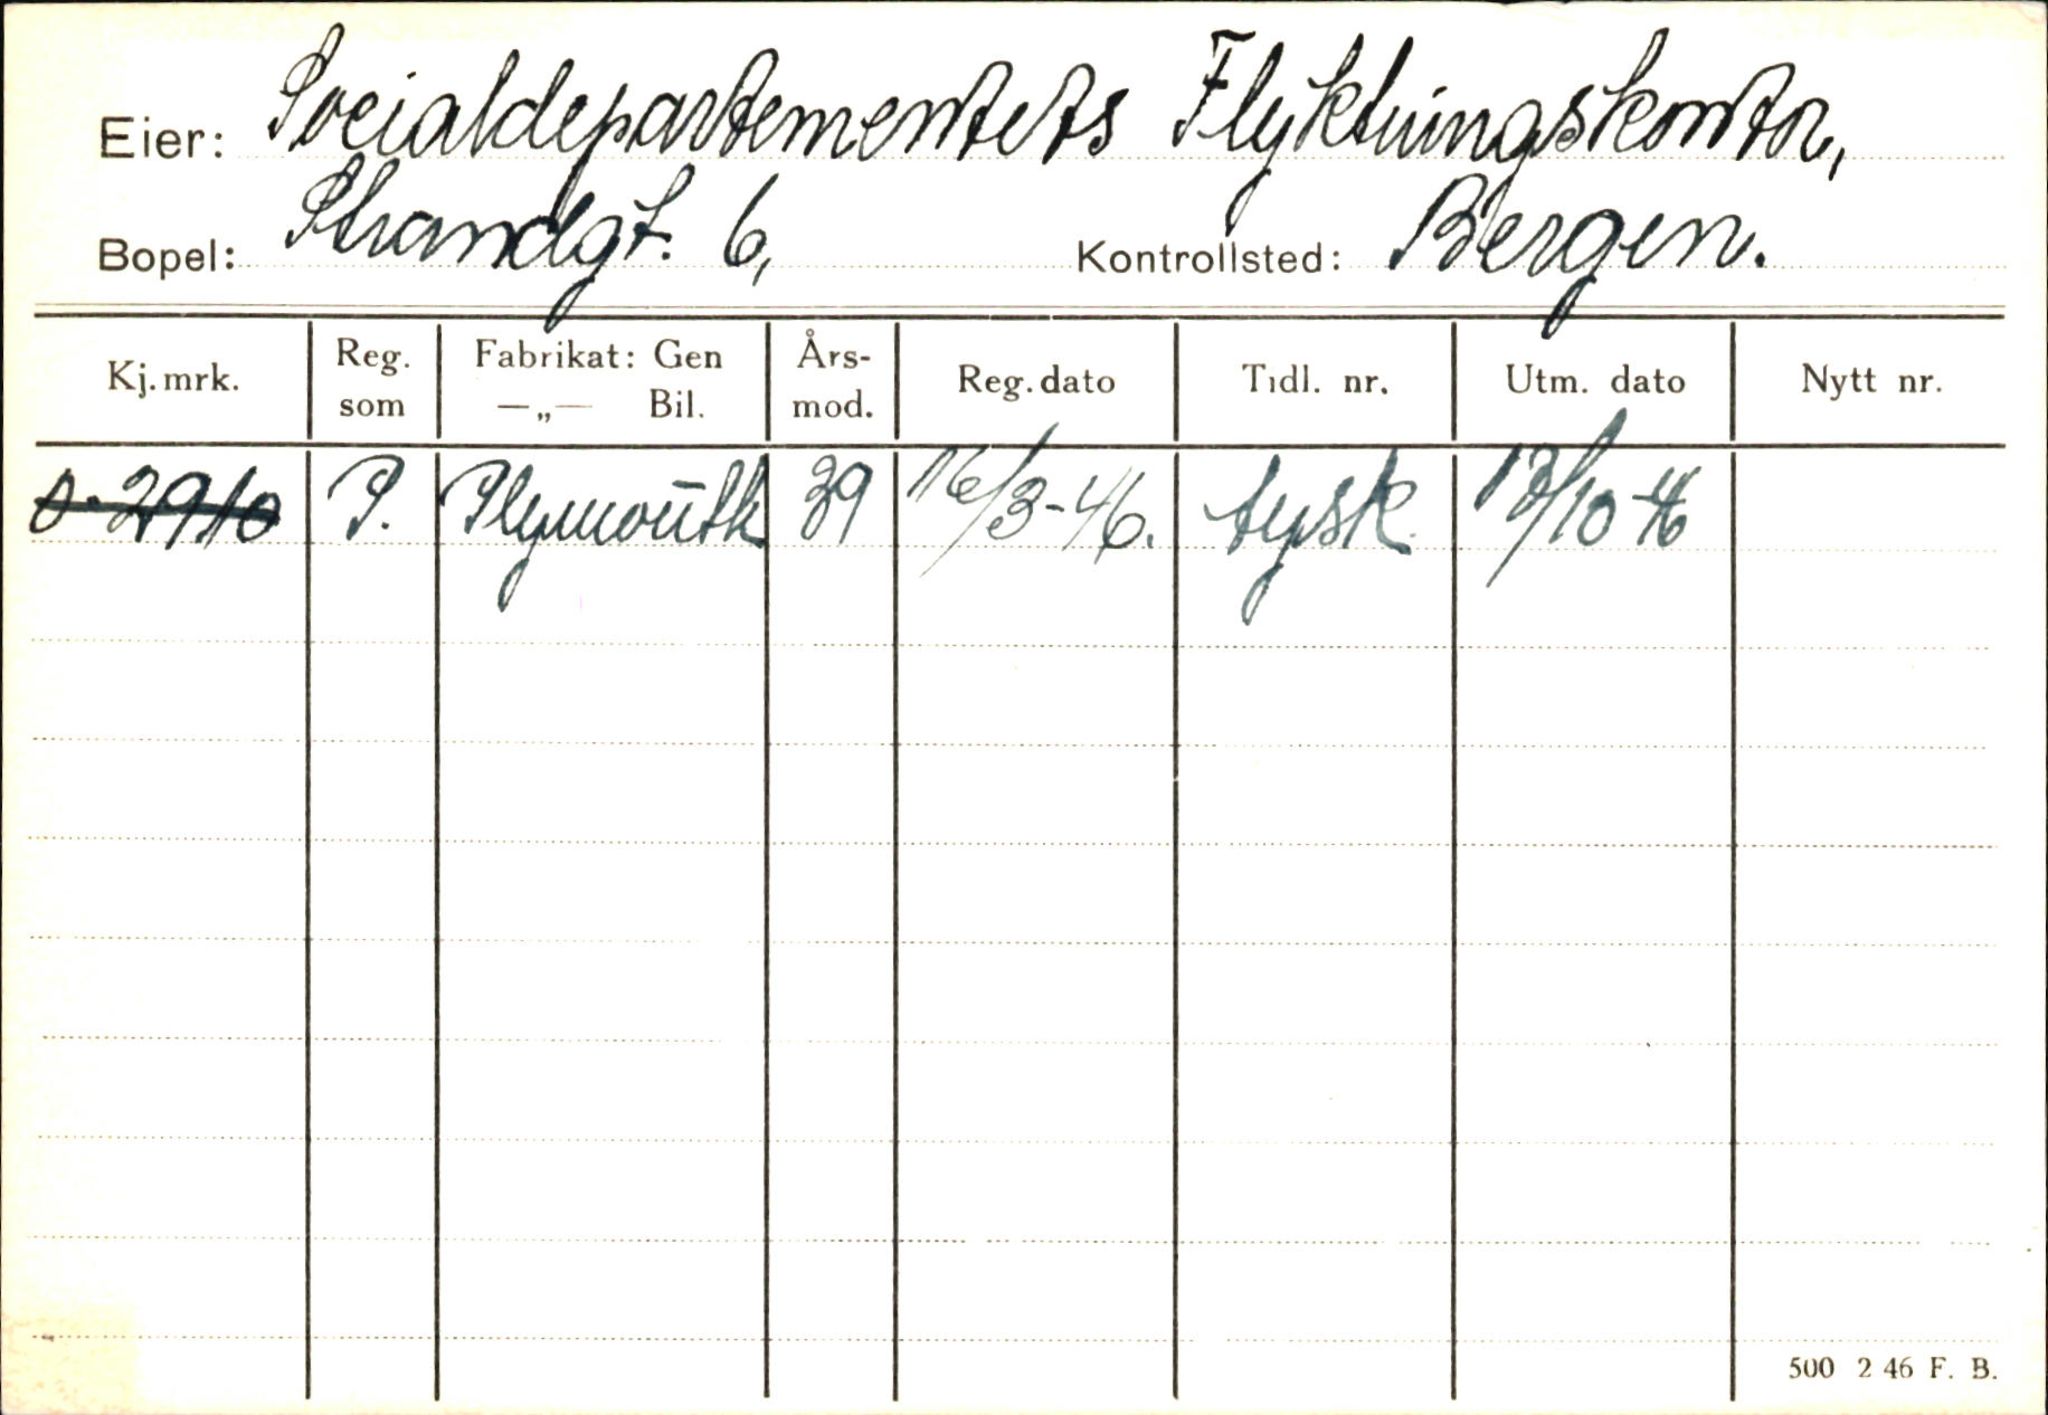 Eier: Socialdepartementets Flyktningskontor,
Bopel: Strandgt. 6, Kontrollsted: Bergen.
Kj. mrk. Reg. som Fabrikat: Gen —„— Bil. Års- mod. Reg. dato Tidl. nr. Utm. dato Nytt nr.
O-2910 P. Plymouth 39 16/3-46. tysk 18/10-46
500 2 46 F. B.